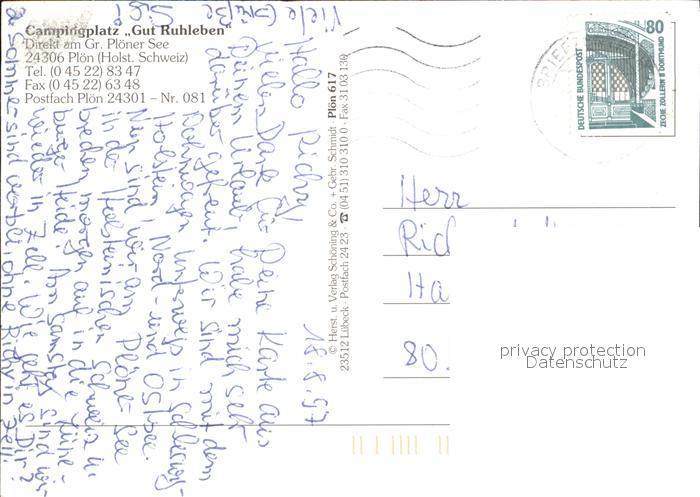 Campingplatz „Gut Ruhleben"
Direkt am Gr. Plöner See
24306 Plön (Holst. Schweiz)
Tel. (0 45 22) 83 47
Fax (0 45 22) 63 48
Postfach Plön 24301 – Nr. 081
18.8.97
Hallo Richy!
Vielen Dank für Deine Karte aus
Deinem Urlaub! habe mich sehr
darüber gefreut. Wir sind mit dem
Wohnwagen unterwegs in Schleswig-
Holstein, Nord- und Ostsee.
Nun sind wir am Plöner See
in der Holsteinischen Schweiz u.
brechen morgen auf in die Lüne-
burger Heide. Am Samstag sind wir
wieder in Zell. Wie geht es Dir?
sind vorbei, ohne Richy in Zell!
Viele Grüße
© Herst. u. Verlag Schöning & Co. + Gebr. Schmidt · Plön 617
23512 Lübeck · Postfach 24 23 · ☎ (04 51) 310 310 0 · Fax 31 03 139
80
DEUTSCHE BUNDESPOST
ZECHE ZOLLERN II DORTMUND
BRIEF
Herr
Ric
Ha
80.
privacy protection
Datenschutz